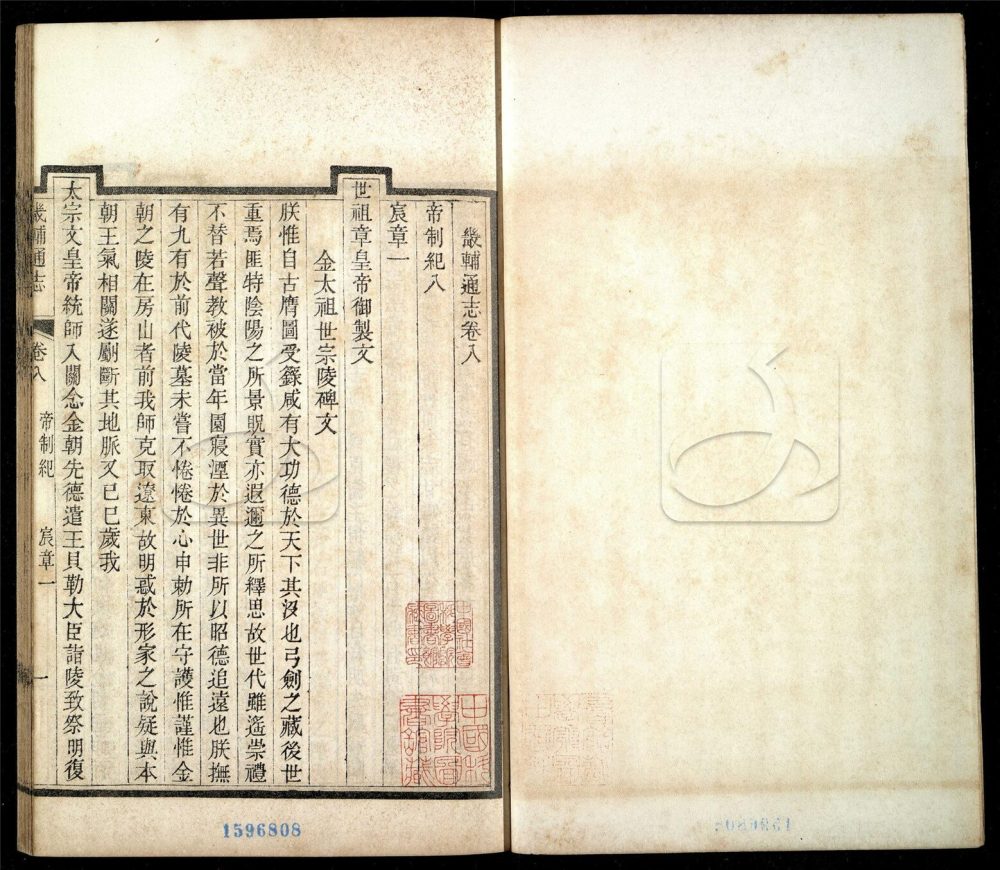 畿輔通志卷八
帝制紀八
宸章一
世祖章皇帝御製文
金太祖世宗陵碑文
朕惟自古膺圖受籙咸有大功德於天下其沒也弓劍之藏後世
重焉匪特陰陽之所景貺實亦遐邇之所繹思故世代雖遙崇禮
不替若聲教被於當年園寢湮於異世非所以昭德追遠也朕撫
有九有於前代陵墓未嘗不惓惓於心申勅所在守護惟謹惟金
朝之陵在房山者前我師克取遼東故明惑於形家之說疑與本
朝王氣相關遂劚斷其地脈又己巳歲我
太宗文皇帝統師入關念金朝先德遣王貝勒大臣詣陵致祭明復
畿輔通志
卷八
帝制紀
宸章一
一
1596808